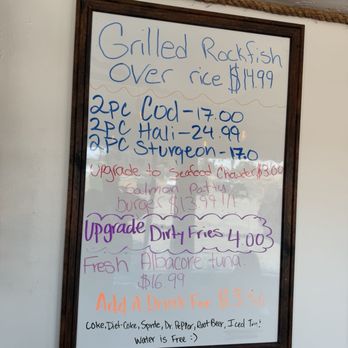 Grilled Rockfish
over rice $14.99
2pc Cod-17.00
2pc Hali-24.99
2pc Sturgeon-17.0
Upgrade to Seafood Chowder $3.00
Salmon Patty
burger $13.99
Upgrade Dirty Fries 4.00
Fresh Albacore tuna.
$16.99
Add A Drink For
Coke, Diet-Coke, Sprite, Dr. Pepper, Root Beer, Iced Tea!
Water is Free :)